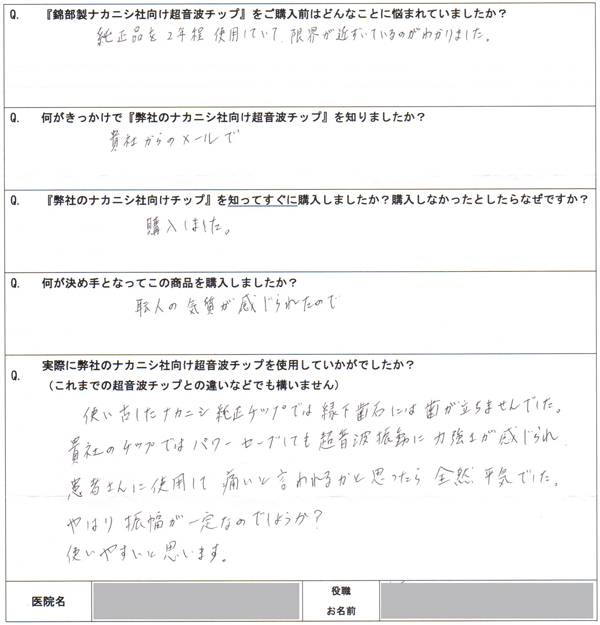 Q. 『錦部製ナカニシ社向け超音波チップ』をご購入前はどんなことに悩まれていましたか？
純正品を2年程使用していて、限界が近づいているのがわかりました。
Q. 何がきっかけで『弊社のナカニシ社向け超音波チップ』を知りましたか？
貴社からのメールで
Q. 『弊社のナカニシ社向けチップ』を知ってすぐに購入しましたか？購入しなかったとしたらなぜですか？
購入しました。
Q. 何が決め手となってこの商品を購入しましたか？
職人の気質が感じられたので
Q. 実際に弊社のナカニシ社向け超音波チップを使用していかがでしたか？
（これまでの超音波チップとの違いなどでも構いません）
使い古したナカニシ純正チップでは縁下歯石には歯が立ちませんでした。
貴社のチップではパワーセーブしても超音波振動に力強さが感じられ、
患者さんに使用して痛いと言われるかと思ったら全然平気でした。
やはり振幅が一定なのでしょうか？
使いやすいと思います。
医院名
役職
お名前